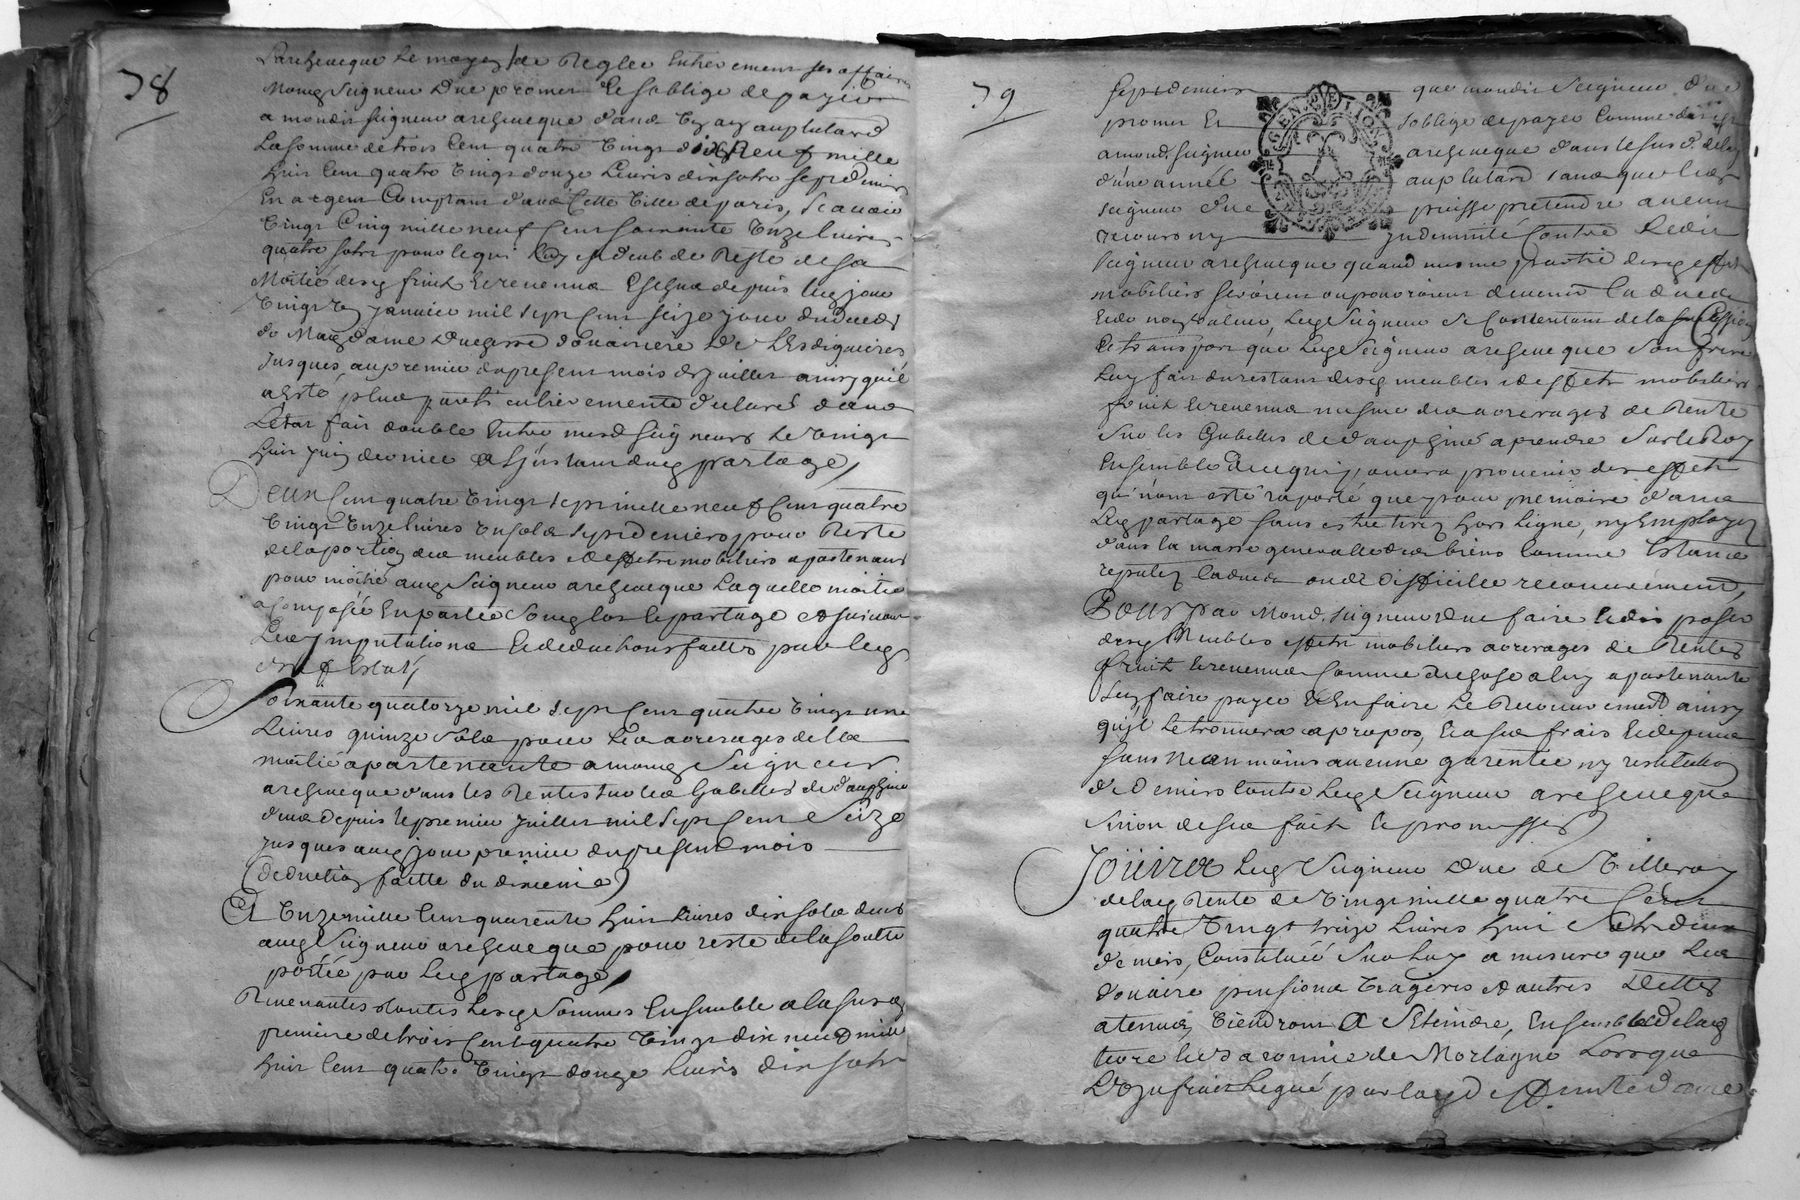 78
L'archeveque le moyen de Regler Entierement ses affaires
Mond Seigneur Duc promet et s'oblige de payer
a mondit seigneur archeveque dans un an au plutard
La somme de trois Cent quatre Vingt dix Neuf mille
huit Cent quatre Vingt douze Livres dix sols sept deniers
En argent Comptant dans Cette Ville de paris, Scavoir
Vingt Cinq mille neuf Cent soixante Unze livres
quatre sols pour ce qui luy est deub de Reste de sa
Moitié desd fruits Et revenus Eschus depuis led jour
Vingt un Janvier mil sept Cent seize jour du deceds
de Mad dame Duchesse douairiere de Lesdiguieres
Jusques au premier du present mois de Juillet ainsy quil
a esté plus particulierement declaré dans
L'etat fait double Entre mesd seigneurs le vingt
huit Juin dernier Et joint aud partage,
Deux Cent quatre Vingt sept mille neuf Cent quatre
Vingt Unze livres Un sols sept deniers pour Reste
de la portion des meubles et effets mobiliers apartenant
pour moitié aud Seigneur archeveque Laquelle moitié
a composée En partie Son lot le partage Et suivant
Les Imputations Et deductions faittes par led
Estat
Soixante quatorze mil sept Cent quatre Vingt une
Livres quinze sols pour les arrerages de la
moitié apartenante a mond Seigneur
archeveque dans les Rentes sur les Gabelles de dauphiné
dus depuis le premier Juillet mil sept Cent Seize
Jusques aud jour premier du present mois
(deduction faitte du dixieme)
Et Unze mille Cent quarente huit Livres dix sols deub
aud Seigneur archeveque pour reste de la soulte
portée par led partage,
Revenantes toutes lesd Sommes Ensemble a la susd
premiere de trois Cent quatre Vingt dix neuf mille
huit Cent quatre Vingt douze Livres dix sols
79
GEN DE LION
sept deniers que mondit Seigneur Duc
promet Et s'oblige de payer Comme dit est
a mond. seigneur archeveque dans le susd. delay
d'une année au plutard sans que led
seigneur Duc puisse pretendre aucun
recours ny Indemnité Contre Ledit
Seigneur archeveque quand mesme partie desd effets
mobiliers seroient ou pouroient devenir Caducs
Et de non valeur, led Seigneur se Contentant de la Cession
Et transport que led Seigneur archeveque son frere
Luy fait du restant desd meubles et effets mobiliers
fruits Et revenus mesme des arrerages de Rente
Sur les Gabelles de dauphiné a prendre sur le Roy
Ensemble de ce qui pourra provenir des effets
qui n'ont esté raporté que pour memoire dans
Led partage sans estre tirez hors ligne, ny Employez
dans la masse generalle des biens Comme Estans
reputez Caducs ou de difficille recouvrement,
Pour par Mond. seigneur Duc faire
desd Meubles effets mobiliers arrerages de Rentes
fruits Et revenus Comme de chose a luy apartenante
Les faire payer Et En faire le Recouvrement ainsy
quil le trouvera a propos, Et a ses frais Et depens
sans Neanmoins aucune garentie ny restitution
de Deniers Contre Led Seigneur archeveque
Sinon de ses faits Et promesses
Jouira Led Seigneur Duc de Villeroy
de lad Rente de Vingt mille quatre Cent
quatre Vingt treize Livres huit Sols deux
deniers, Constituée Sur Luy a mesure que Les
douaire pensions Viageres Et autres Dettes
a tenus Viendront A S'eteindre, Ensemble de lad
terre Et baronnie de Mortagne Lorsque
L'Usufruit Legué par lad deffunte dame